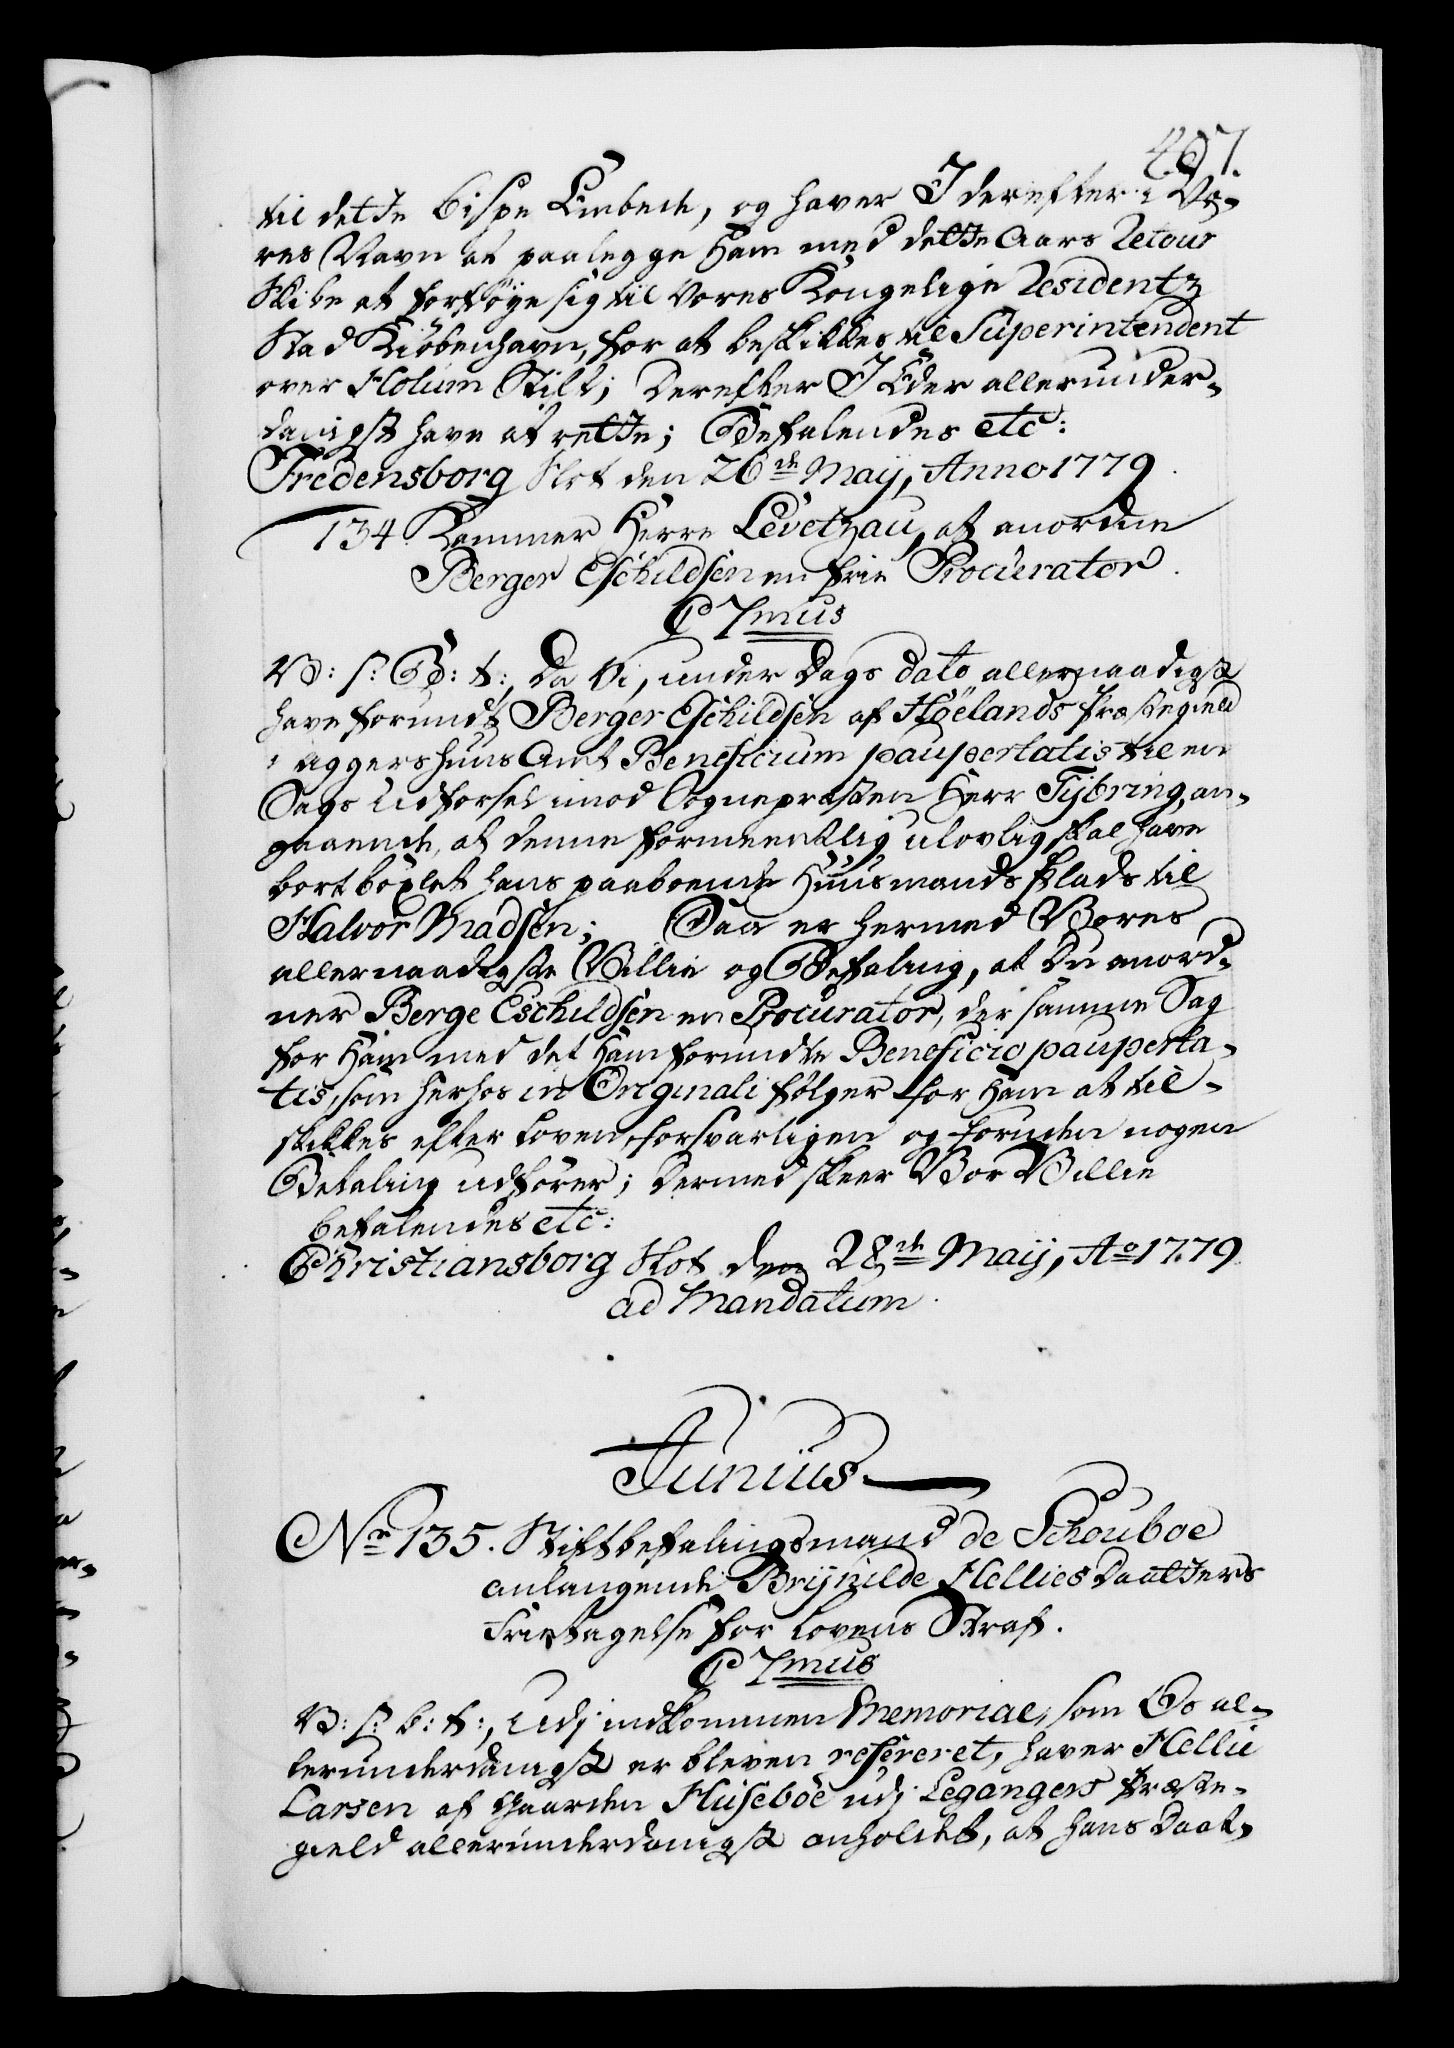 407.
til dette Bispe Embede, og haver I derefter i Vo-
res Navn at paalegge Ham med dette Aars Retour
Skibe at forføye sig til Vores Kongelige Residentz
Stad Kiöbenhavn, for at beskikkes til Superintendent
over Holum Stift; Derefter I Eder allerunder-
danigst have at rette; Befalendes etc:
Fredensborg Slot den 26de Maij, Anno 1779.
134. Kammer Herre Levetzau, at anordne
Berger Eschildsen en frie Procurator.
C 7mus
V: s: G: t:, Da Vi, under Dags dato allernaadigst
have forundt Berger Eschildsen af Höelands Præstegield
i Aggershuus Amt Beneficium paupertatis til en
Sags Udförsel imod Sognepræsten Herr Tybring, an-
gaaende, at denne formeentlig ulovlig skal have
bortböxlet hans paaboende Huusmands Plads til
Halvor Madsen; Saa er hermed Vores
allernaadigste Villie og Befaling, at Du anord-
ner Berge Eschildsen en Procurator, der samme Sag
for Ham med det Ham forundte Beneficio pauperta-
tis, som herhos in Originali fölger for Ham at til-
stikkes efter Loven, forsvarligen og foruden nogen
Betaling udförer; Dermed skeer Vor Villie
befalendes etc:
Christiansborg Slot den 28de Maij, Ao 1779.
ad Mandatum.
Junius
No 135. Stiftbefalingsmand de Schouboe
anlangende Brijnilde Hellies Daatters
Fritagelse for Lovens Straf.
C 7mus
V: s: G: t:, Udj indkommen Memorial, som Os al-
lerunderdanigst er bleven refereret, haver Hellie
Larsen af Gaarden Huseböe udj Leganger Præste-
gield allerunderdanigst anholdet, at hans Daat-